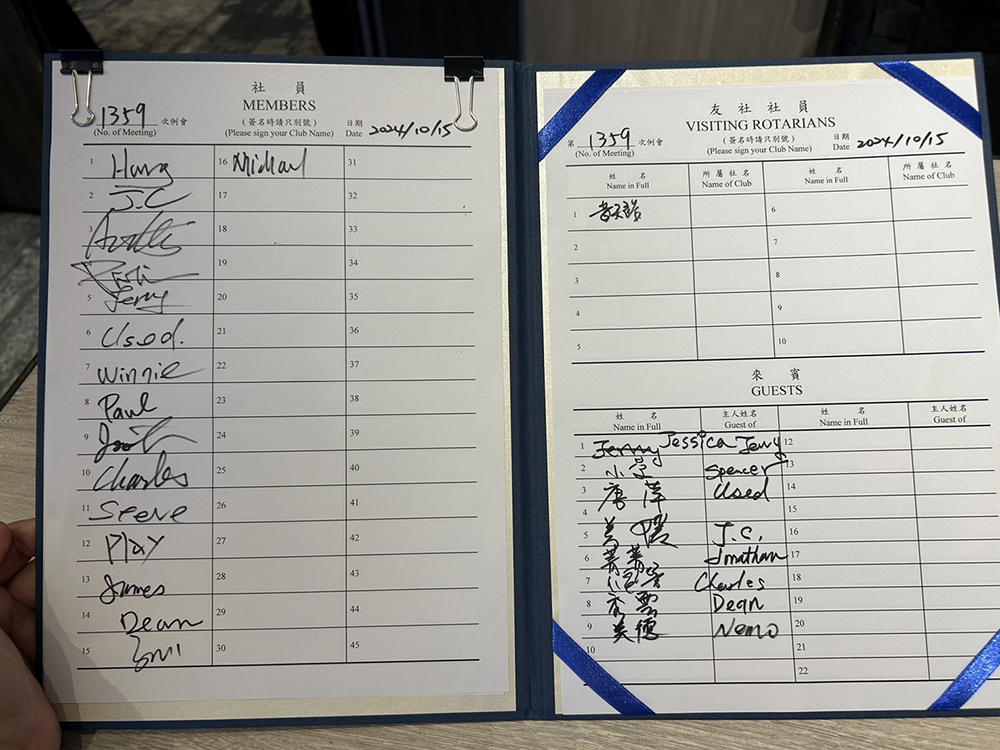 社 員
MEMBERS
1359 次例會
(No. of Meeting)
(簽名時請只別號)
(Please sign your Club Name)
日期
Date 2024/10/15
1
2 J.C
3
5 Jerry
6 Used.
7 Winnie
8 Paul
9
10 Charles
11 Steve
12 Play
13 James
14 Dean
15
16 Michael
17
18
19
20
21
22
23
24
25
26
27
28
29
30
31
32
33
34
35
36
37
38
39
40
41
42
43
44
45
友 社 社 員
VISITING ROTARIANS
第 1359 次例會
(No. of Meeting)
(簽名時請只別號)
(Please sign your Club Name)
日期
Date 2024/10/15
姓 名 所 屬 社 名 姓 名 所 屬 社 名
Name in Full Name of Club Name in Full Name of Club
1 6
2 7
3 8
4 9
5 10
來 賓
GUESTS
姓 名 主人姓名 姓 名 主人姓名
Name in Full Guest of Name in Full Guest of
1 Jessica Jerry 12
2 Spencer 13
3 Used 14
4 15
5 J.C. 16
6 Jonathan 17
7 Charles 18
8 Dean 19
9 美德 Nemo 20
10 21
22